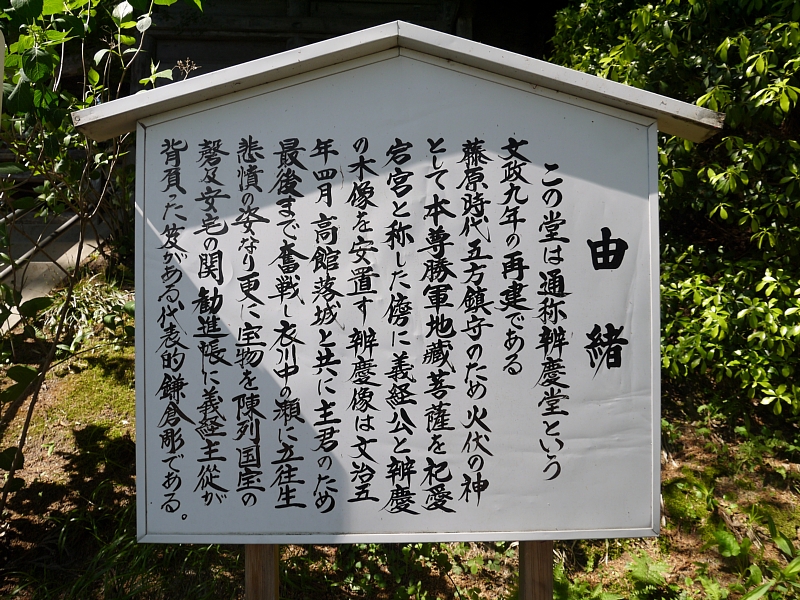 由緒
この堂は通称辨慶堂という
文政九年の再建である
藤原時代五方鎮守のため火伏の神
として本尊勝軍地蔵菩薩を祀愛
宕宮と称した傍に義経公と辨慶
の木像を安置す辨慶像は文治五
年四月高館落城と共に主君のため
最後まで奮戦し衣川中の瀬に立往生
悲憤の姿なり更に宝物を陳列国宝の
磬及安宅の関勧進帳に義経主従が
背負った笈がある代表的鎌倉彫である。